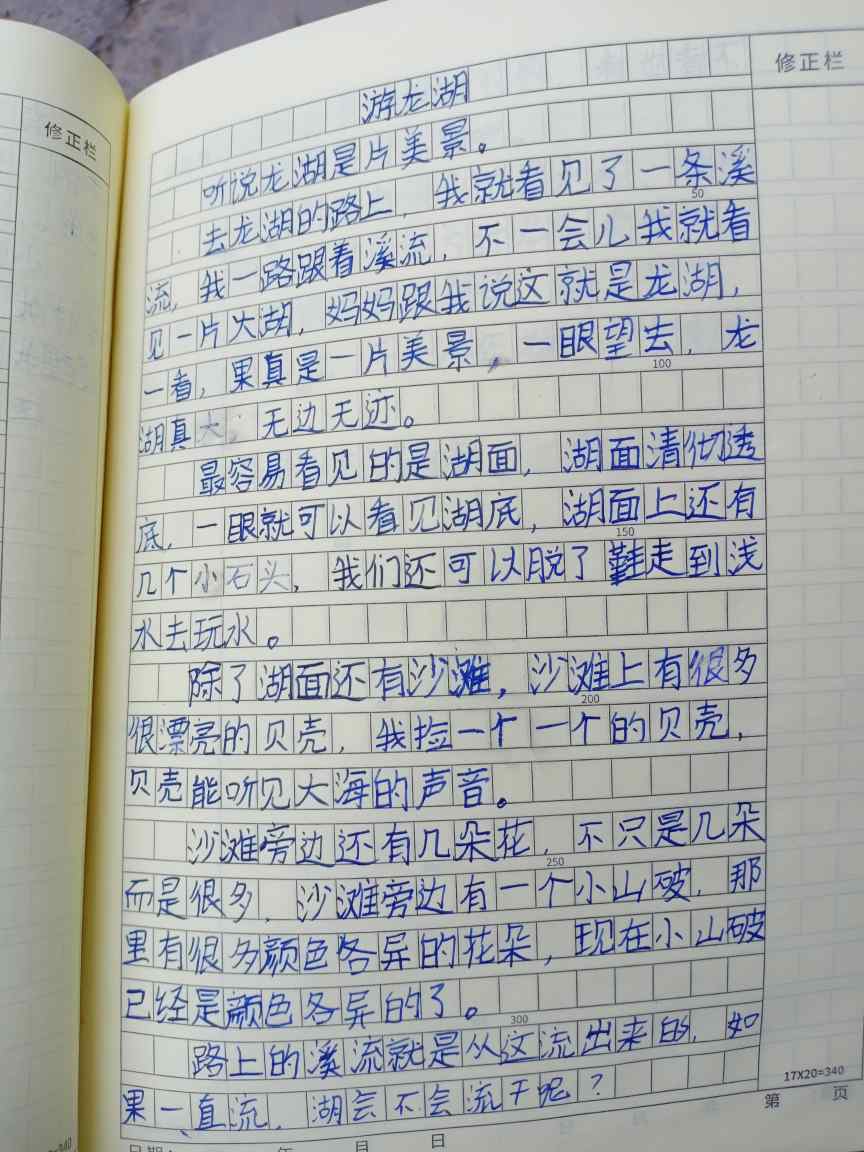 修正栏
修正栏
游龙湖
听说龙湖是片美景。
去龙湖的路上，我就看见了一条溪
50
流，我一路跟着溪流，不一会儿我就看
见一片大湖，妈妈跟我说这就是龙湖，
一看，果真是一片美景，一眼望去，龙
100
湖真大，无边无迹。
最容易看见的是湖面，湖面清彻透
底，一眼就可以看见湖底，湖面上还有
150
几个小石头，我们还可以脱了鞋走到浅
水去玩水。
除了湖面还有沙滩，沙滩上有很多
200
很漂亮的贝壳，我捡一个一个的贝壳，
贝壳能听见大海的声音。
沙滩旁边还有几朵花，不只是几朵
250
而是很多，沙滩旁边有一个小山破，那
里有很多颜色各异的花朵，现在小山破
已经是颜色各异的了。
300
路上的溪流就是从这流出来的，如
果一直流，湖会不会流干呢？
17X20=340
第 页
年 月 日